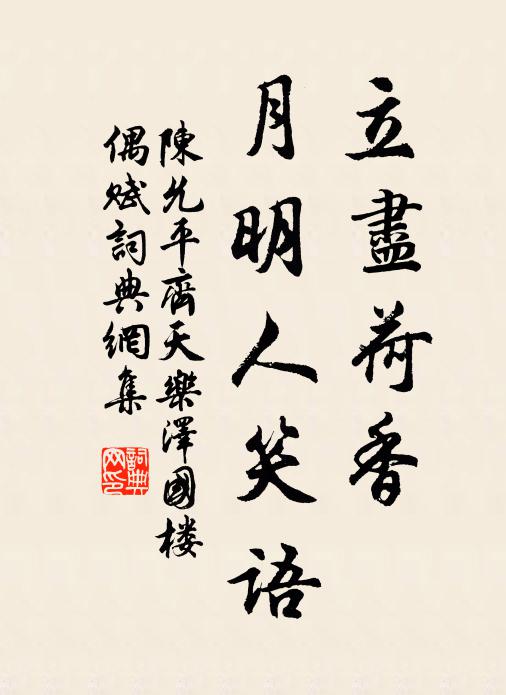 立盡荷香
月明人笑語
陳允平齊天樂澤國楼
偶賦詞典網集
詞典网印